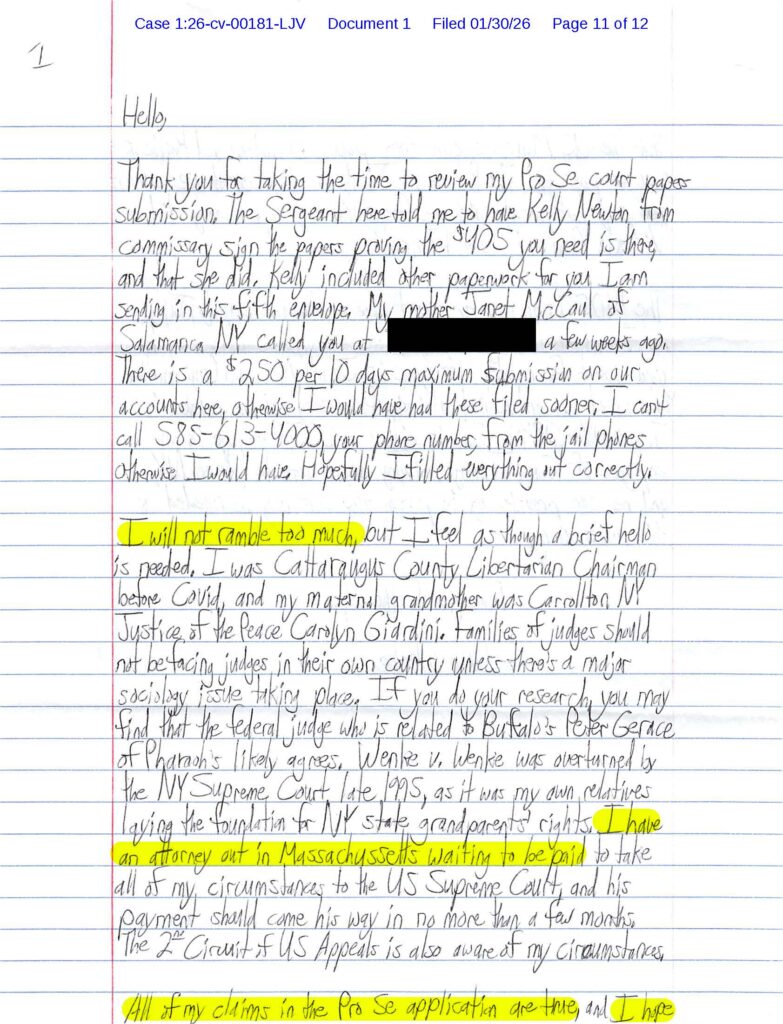 Case 1:26-cv-00181-LJV Document 1 Filed 01/30/26 Page 11 of 12
1
Hello,
Thank you for taking the time to review my Pro Se court papers
submission. The Sergeant here told me to have Kelly Newton from
commissary sign the papers proving the $405 you need is there,
and that she did. Kelly included other paperwork for you I am
sending in this fifth envelope. My mother Janet McCaul of
Salamanca NY called you at a few weeks ago.
There is a $250 per 10 days maximum submission on our
accounts here, otherwise I would have had these filed sooner. I can't
call 585-613-4000, your phone number, from the jail phones
otherwise I would have. Hopefully I filled everything out correctly.
I will not ramble too much, but I feel as though a brief hello
is needed. I was Cattaraugus County Libertarian Chairman
before Covid, and my maternal grandmother was Carrollton NY
Justice of the Peace Carolyn Giardini. Families of judges should
not be facing judges in their own country unless there's a major
sociology issue taking place. If you do your research, you may
find that the federal judge who is related to Buffalo's Peter Gerace
of Pharaoh's likely agrees. Wenke v. Wenke was overturned by
the NY Supreme Court late 1995, as it was my own relatives
laying the foundation for NY state grandparents' rights. I have
an attorney out in Massachyssetts waiting to be paid to take
all of my circumstances to the US Supreme Court, and his
payment should come his way in no more than a few months.
The 2nd Circuit of US Appeals is also aware of my circumstances.
All of my claims in the Pro Se application are true, and I hope